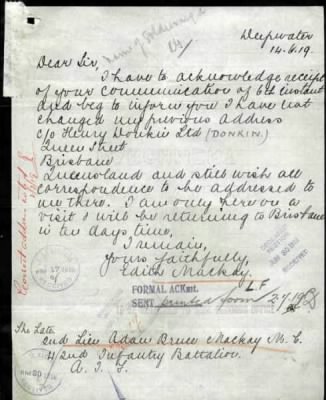 Deepwater
14.6.19.
Dear Sir,
I have to acknowledge receipt
of your communication of 6th instant
and beg to inform you I have not
changed my previous address
c/o Henry Donkin Ltd (DONKIN.)
Queen Street
Brisbane
Queensland and still wish all
correspondence to be addressed to
me there. I am only here on a
visit I will be returning to Brisbane
in ten days time,
I remain,
Yours faithfully,
Edith Mackay.
FORMAL ACKmt.
SENT printed form 2.7.19
LF
The Late
2nd Lieu Adam Bruce Mackay M.C.
42nd Infantry Battalion.
A.I.F.